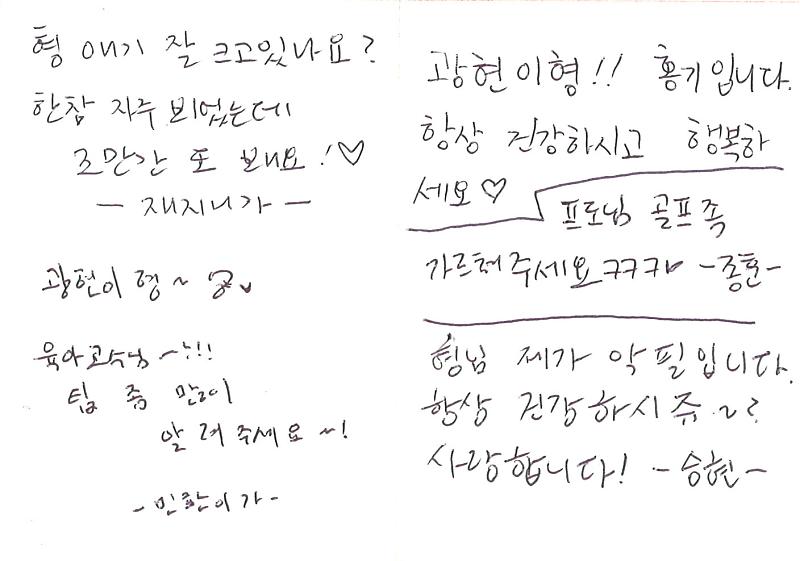 형 애기 잘 크고있나요?
한참 자주 비었는데
조만간 또 보내요!♡
- 재지니가 -
광현이 형~
육아고수님~!!!
팁 좀 많이
알려주세요~!
- 민환이가 -
광현이형!! 홍기입니다.
항상 건강하시고 행복하
세요♡
프로님 골프 쫌
가르쳐주세요ㅋㅋㅋ♥ -종훈-
형님 제가 악필입니다.
항상 건강하시쥬~?
사랑합니다! -승현-